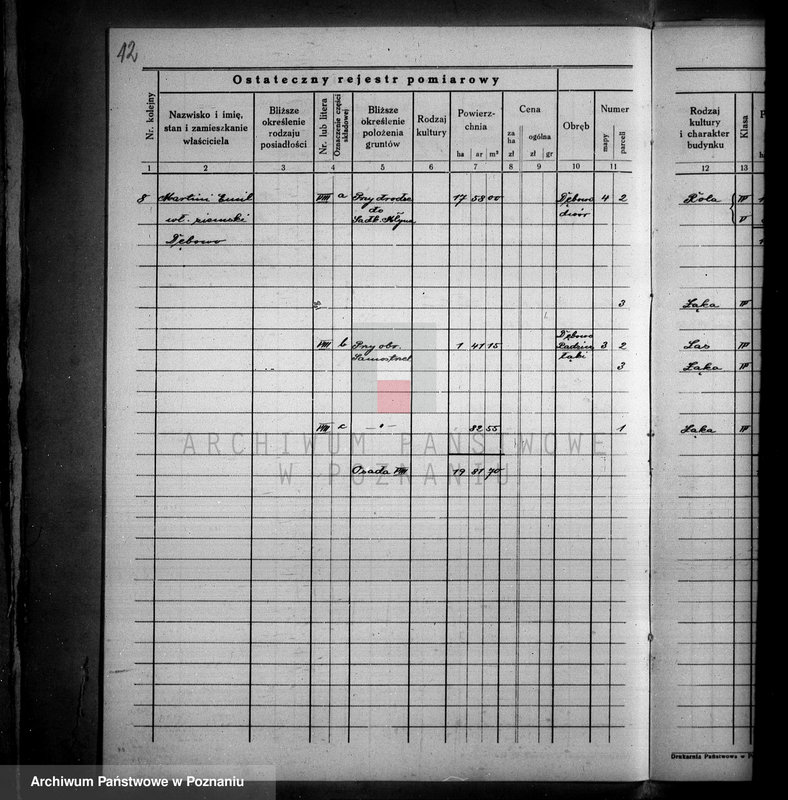 12
Ostateczny rejestr pomiarowy
Nr. kolejny
Nazwisko i imię, stan i zamieszkanie właściciela
Bliższe określenie rodzaju posiadłości
Nr. lub litera
Oznaczenie części składowej
Bliższe określenie położenia gruntów
Rodzaj kultury
Powierzchnia
ha ar m²
Cena
za ha zł
ogólna zł gr
Obręb
Numer
mapy parceli
Rodzaj kultury i charakter budynku
Klasa
1 2 3 4 5 6 7 8 9 10 11 12 13
8 Martini Emil VIII a Przy drodze 17 58 00 Dębowo 4 2 Rola IV
wł. ziemski do dwór V
Sadk. Młyna
Dębowo
3 Łąka IV
VIII b Przy obr. 1 41 15 Dębowo 3 2 Las IV
Samostrzel łąki
3 Łąka IV
VIII c -"- 82 55 1 Łąka IV
Osada VIII 19 81 70
ARCHIWUM PAŃSTWOWE
W POZNANIU
Drukarnia Państwowa w P
Archiwum Państwowe w Poznaniu